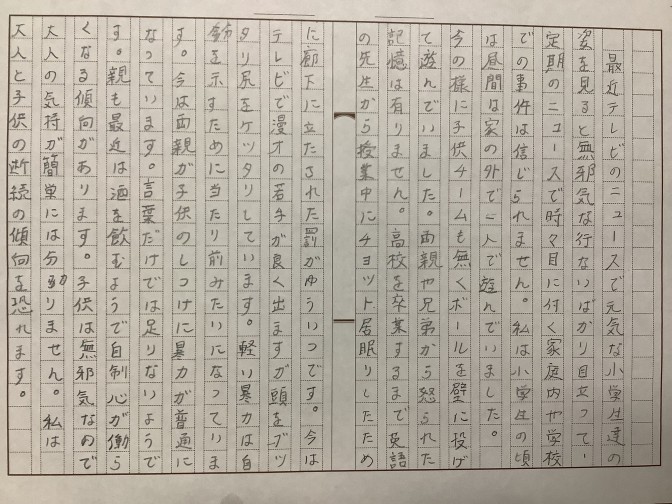 最近テレビのニュースで元気な小学生達の
姿を見ると無邪気な行ないばかり目立って、
定期のニュースで時々目に付く家庭内や学校
での事件は信じられません。私は小学生の頃
は昼間は家の外で一人で遊んでいました。
今の様に子供チームも無くボールを壁に投げ
て遊んでいました。両親や兄弟から怒られた
記憶は有りません。高校を卒業するまで英語
の先生から授業中にチョット居眠りしたため
に廊下に立たされた罰がゆういつです。今は
テレビで漫才の若手が良く出ますが頭をブッ
タリ尻をケッタリしています。軽い暴力は自
然を示すために当たり前みたいになっていま
す。今は両親が子供のしつけに暴力が普通に
なっています。言葉だけでは足りないようで
す。親も最近は酒を飲むようで自制心が働ら
くなる傾向があります。子供は無邪気なので
大人の気持が簡単には分りません。私は
大人と子供の断続の傾向を恐れます。